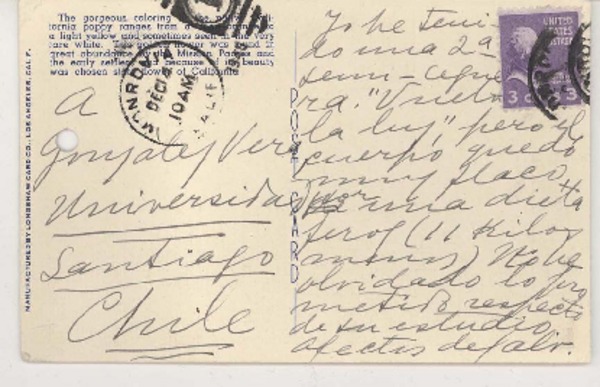 The gorgeous coloring of the
California poppy ranges from a
a light yellow and sometimes seen in the very
rare white. This golden flower was found in
great abundance by the Mission Padres and
the early settlers and because of its beauty
was chosen state flower of California
MONROVIA
DEC 12
10 AM
CALIF
UNITED STATES
POSTAGE
3 3
POST CARD
MANUFACTURED BY LONGSHAW CARD CO., LOS ANGELES, CALIF.
A
González Vera
Universidad
Santiago
Chile
Yo he teni-
do una 2a
semi-cegue-
ra. "Vuelta
la luz", pero el
cuerpo quedó
muy flaco
por una dieta
feroz (11 kilos
menos) No he
olvidado lo pro
metido respecto
de su estudio.
Afectos de Gabr.